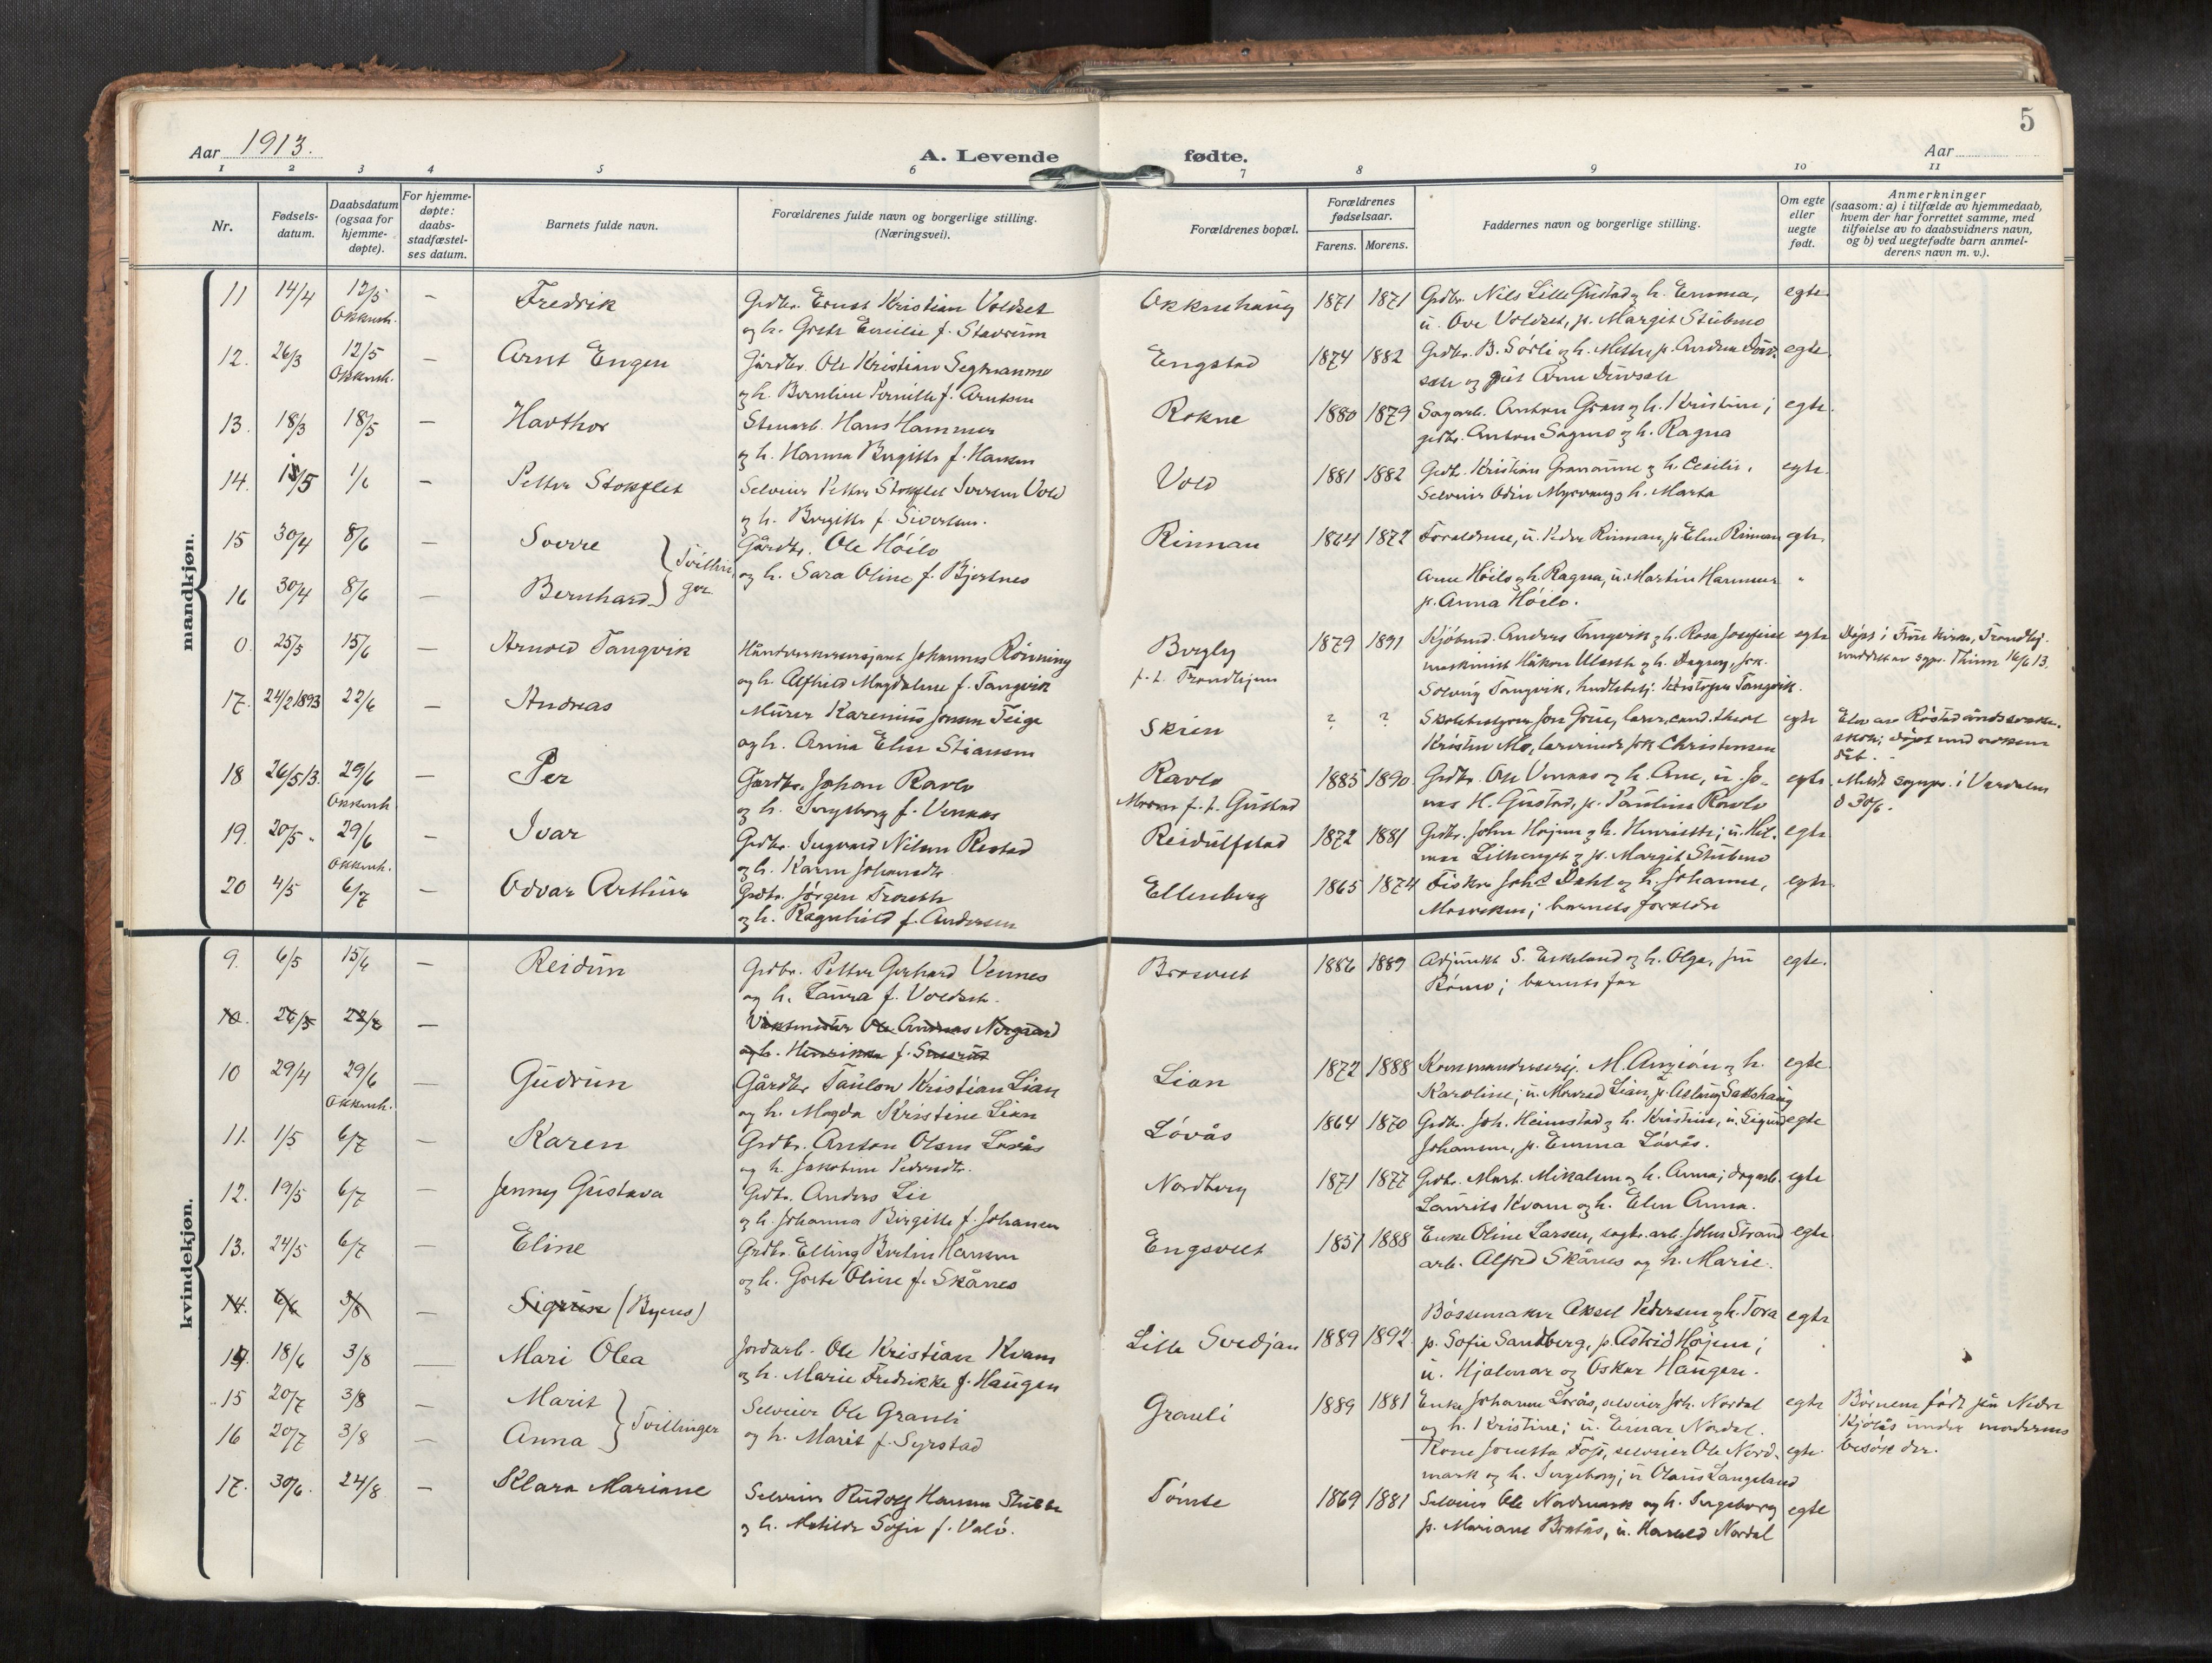 5
Aar 1913.
A. Levende fødte.
Aar
1 2 3 4 5 6 7 8 9 10 11
Nr.
Fødsels-
datum.
Daabsdatum
(ogsaa for
hjemme-
døpte).
For hjemme-
døpte:
daabs-
stadfæstel-
ses datum.
Barnets fulde navn.
Forældrenes fulde navn og borgerlige stilling.
(Næringsvei).
Forældrenes bopæl.
Forældrenes
fødselsaar.
Farens. Morens.
Faddernes navn og borgerlige stilling.
Om egte
eller
uegte
født.
Anmerkninger
(saasom: a) i tilfælde av hjemmedaab,
hvem der har forrettet samme, med
tilføielse av to daabsvidners navn,
og b) ved uegtefødte barn anmel-
derens navn m. v.).
mandkjøn.
11 14/4 12/5 — Fredrik Grdbr. Ernst Kristian Voldset Okkenhaug 1871 1871 Grdbr. Nils Lille Gustad og h. Emma, egte
Okkenh. og h. Grete Emilie f. Stavrum u. Ove Voldset, p. Margit Stubmo
12. 26/3 12/5 — Arnt Engen Gårdbr. Ole Kristian Segtnanmo Engstad 1874 1882 Grdbr. B. Sørli og h. Mette, p. egte
Okkenh. og h. Berntine Pernille f. Arntsen
13. 18/3 18/5 — Havthor Stenarb. Hans Hammer Rokne 1880 1879 Sagarb. Anton Gran og h. Kristine; egte
og h. Hanna Bergitte f. Hansen grdbr. Anton Sagmo og h. Ragna
14. 15/5 1/6 — Petter Stokflet Selveier Petter Stokflet Iversen Vold Vold 1881 1882 Grdbr. Kristian Granaune og h. Cecilie, egte.
og h. Bergitte f. Sivertsen. Selveier Odin Myrvang og h. Marta
15 30/4 8/6 — Sverre Tvillin- Gårdbr. Ole Höilo Rinnan 1872 Forældrene, u. Peder Rinnan, p. Elen Rinnan egte
og h. Sara Oline f. Bjertnes
16 30/4 8/6 — Bernhard ger Arne Höilo og h. Ragna, u. Martin Hammer "
p. Anna Höilo.
0. 25/5 15/6 — Arnold Tangvik Håndverkersersjant Johannes Rönning Bergly 1879 1891 Kjöbmd. Anders Tangvik og h. Rosa Josefine egte Döpt i Frue kirke, Trondhj.
og h. Alfhild Magdalene f. Tangvik f. t. Trondhjem maskinist Håkon Ulseth og h. Dagny, frk. meddelt av sogn. Thinn 16/6 13.
Solveig Tangvik, Kristofer Tangvik.
17. 24/2 1893 22/6 — Andreas Murer Karenius Jensen Teige Skien ? ? Skolebestyrer Jon Grue, lærer, cand. theol egte Elev av Röstad åndssvake-
og h. Anna Elen Stiansen Kristen Mo, lærerinde frk Christensen skole; döpt ved voksen
dåb.
18 26/5 13. 29/6 — Per Gårdbr. Johan Ravlo Ravlo 1885 1890 Grdbr. Ole Vennes og h. Ane, u. Jo- egte. Meldt sognepr. i Verdalen
Okkenh og h. Ingeborg f. Vennes Moren f. t. Gustad nas H. Gustad, p. Pauline Ravlo d 30/6.
19. 20/5 - 29/6 — Ivar Grdbr. Ingvard Nilsen Restad Reidulfstad 1872 1881 Grdbr. John Hojem og h. Henriette; u. Hil- egte.
Okkenh. og h. Karen Johansdtr. mar Lillenget og p. Margit Stubmo
20 4/5 6/7 — Odvar Arthur Grdbr. Jørgen Troseth Ellenberg 1865 1874 Fisker Joh. Dahl og h. Johanne, egte
og h. Ragnhild f. Andersen Mosviken; barnets forældre
kvindekjøn.
9. 6/5 15/6 — Reidun Grdbr. Petter Gerhard Vennes Brosveet 1886 1889 Adjunkt S. Eskeland og h. Olga, fru egte.
og h. Laura f. Voldset. Römo; barnets far
10. 26/5 22/6 — Vaktmester Ole Andreas Norgaard
og h. Henrikke f.
10 29/4 29/6 — Gudrun Gårdbr Paulon Kristian Lian Lian 1872 1888 Kommandersersj. M. Anzion og h. egte
Okkenh. og h. Magda Kristine Lian Karoline; u. Lian, p. Aslaug Sakshaug
11. 1/5 6/7 — Karen Grdbr. Anton Olsen Løvås Lóvås 1864 1870 Grdbr. Joh. Heimstad og h. Kristine, u. Sigurd egte
og h. Jakobine Pedersdtr. Johansen, p. Emma Lóvås.
12. 19/5 6/7 — Jenny Gustava Grdbr. Anders Lie Nordberg 1871 1877 Grdbr. Mart. Mikalsen og h. Anna; dagarb. egte
og h. Johanna Birgitte f. Johansen Laurits Kvam og h. Elen Anna.
13. 24/5 6/7 — Eline Grdbr. Elling Bertin Hansen Engsveet 1851 1888 Enke Oline Larsen, sagbr. arb. Johs Strand egte
og h. Grete Oline f. Skånes arb. Alfred Skånes og h. Marie.
14. 6/6 3/8 — Sigrun (Byens)
14. 18/6 3/8 — Mari Olea Jordarb. Ole Kristian Kvam Lille Svedjan 1889 1892. Bössemaker Aksel Pedersen og h. Tora egte
og h. Marie Fredrikke f. Haugen p. Sofie Sandberg, p. Astrid Hojem;
u. Hjalmar og Oskar Haugen.
15 20/7 3/8 — Marit Tvillinger Selveier Ole Grauli Grauli 1889 1881 Enke Johanne Lovås, selveier Joh. Nordal egte Börnene födt på Nedre
og h. Marit f. Syrstad og h. Kristine; u. Einar Nordal. Kjölås under moderens
16 20/7 3/8 — Anna Kone Jonetta Fos, selveier Ole Nord- egte besök der.
mark og h. Ingeborg; u Olaus Langeland
17. 30/6. 24/8 — Klara Mariane Selveier Rudolf Hansen Stubbe Tömte 1869 1881 Selveier Ole Nordmark og h. Ingeborg egte
og h. Matilde Sofie f. Valö. p. Mariane Bratås, u. Harald Nordal